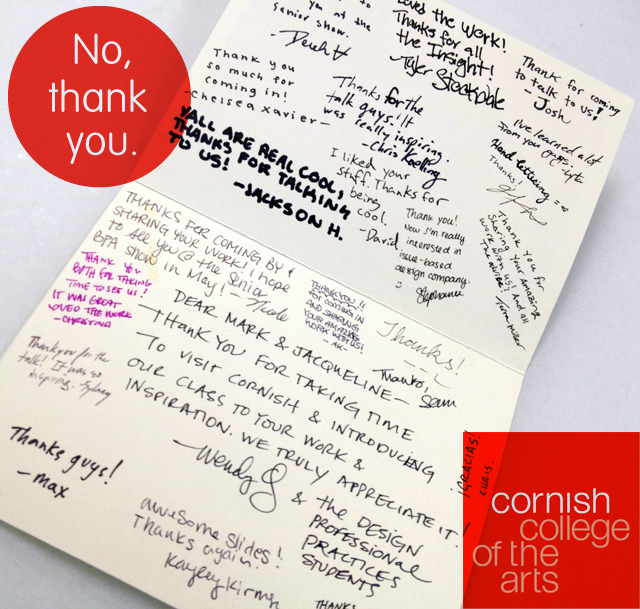 No,
thank
you.
you at the
senior show.
- Derek H
Loved the work!
Thanks for all
the Insight!
-Tyler Stockdale
Thank for coming
to talk to us!
- Josh
Thank you
so much for
coming in!
-Chelsea Xavier-
Thanks for the
talk guys! It
was really inspiring.
-Chris
I've learned a lot
from you guys.
Hand lettering = <3
Thanks!
YALL ARE REAL COOL,
THANKS FOR TALKING
TO US!
-JACKSON H.
I liked your
stuff. Thanks for
being
cool.
- David
Thank you!
Now I'm really
interested in
issue-based
design company.
Stephanie
Thank you for
sharing your amazing
work with us! And all
the advice!
THANKS FOR COMING BY &
SHARING YOUR WORK! I hope
to see you @ the Senior
BFA show in May! - Nicole
THANK YOU
BOTH FOR TAKING
TIME TO SEE US!
IT WAS GREAT
LOVED THE WORK
-CHRISTINA
THANK YOU!!
FOR COMING IN
AND SHARING
YOUR AMAZING
WORK WITH US!
-AK-
Thanks!
Thanks,
Sean
DEAR MARK & JACQUELINE-
THANK YOU FOR TAKING TIME
TO VISIT CORNISH & INTRODUCING
OUR CLASS TO YOUR WORK &
INSPIRATION. WE TRULY APPRECIATE IT!
-Wendy Q & the DESIGN
PROFESSIONAL
PRACTICES
STUDENTS
Thank you for the
talk! It was so
inspiring. -Sydney
Thanks guys!
- max
awesome slides!
Thanks again.
Kayley
THANKS
¡GRACIAS!
CHRIS.
cornish
college
of the
arts